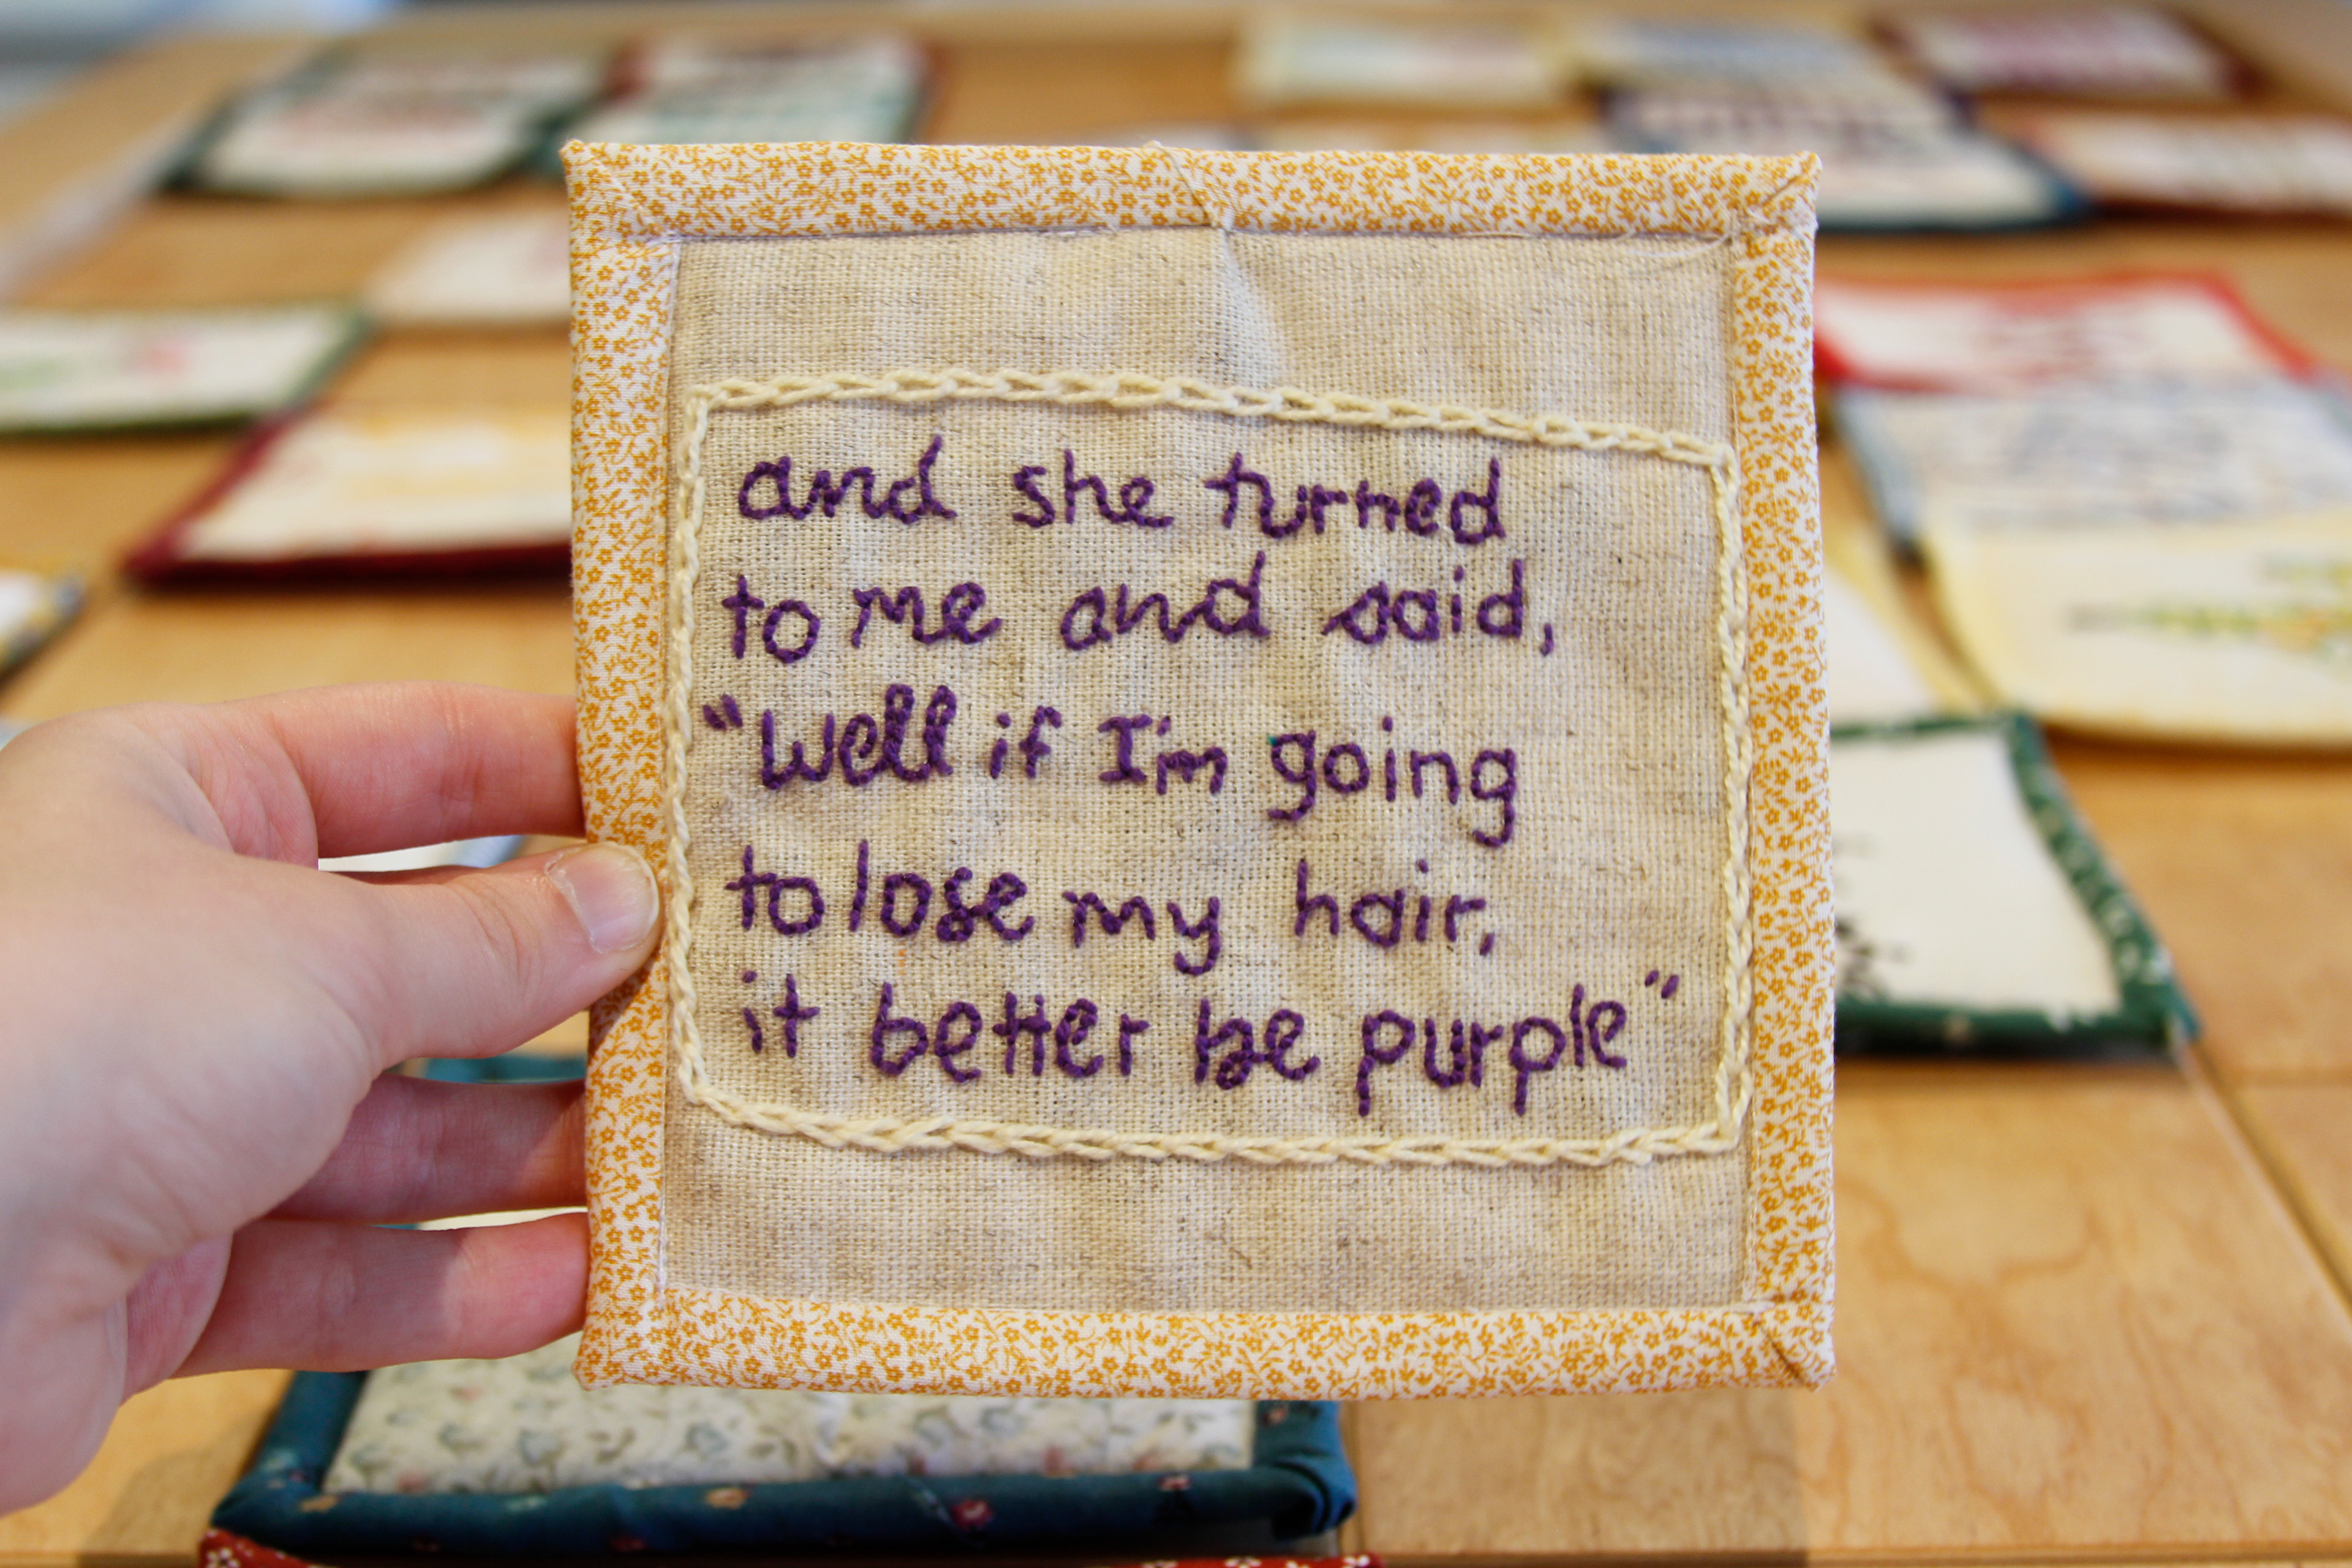 and she turned
to me and said,
"Well if I'm going
to lose my hair,
it better be purple"